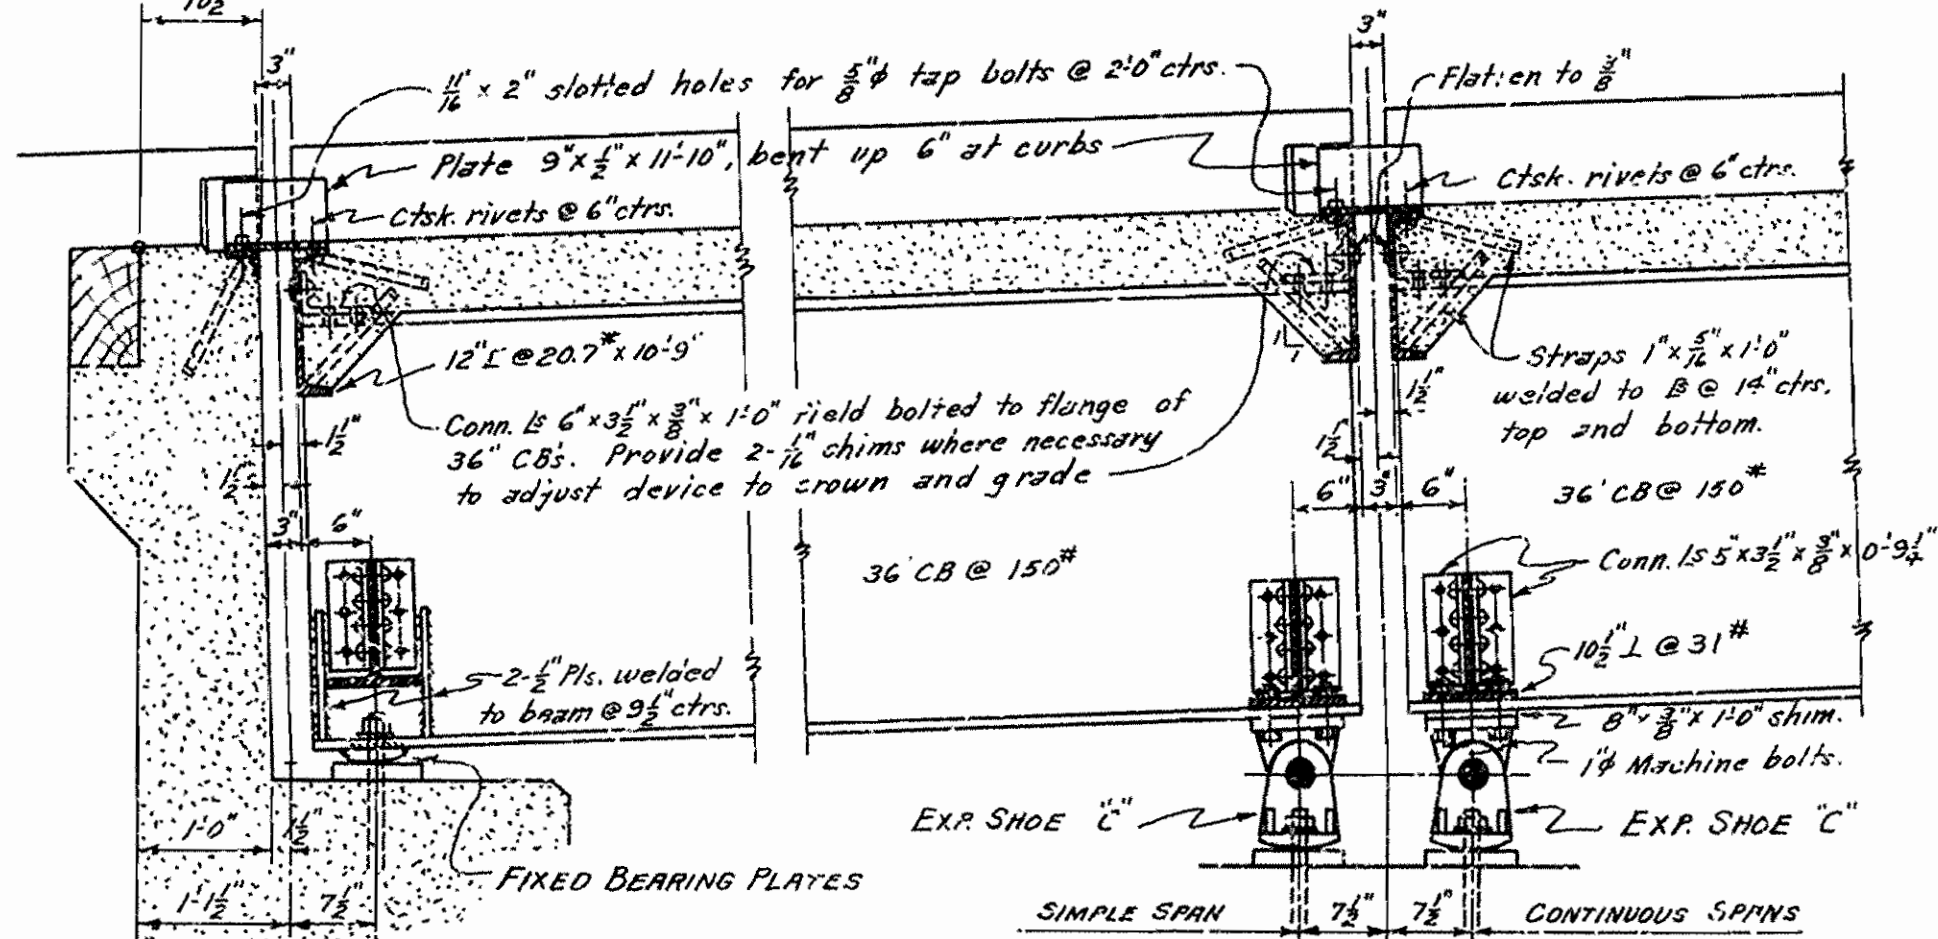 10½
3"
3"
11/16" x 2" slotted holes for 5/8"ϕ tap bolts @ 2'-0" ctrs.
Flatten to 3/8"
Plate 9" x ½" x 11'-10", bent up 6" at curbs
Ctsk. rivets @ 6" ctrs.
Ctsk. rivets @ 6" ctrs.
12" [ @ 20.7# x 10'-9"
Straps 1" x 5/16" x 1'-0"
welded to @ 14" ctrs.
top and bottom.
Conn. Ls 6" x 3½" x 3/8" x 1'-0" field bolted to flange of
36" CB's. Provide 2-1/16" shims where necessary
to adjust device to crown and grade
1½"
1½"
1½"
1½"
3"
6"
6"
3"
6"
36" CB @ 150#
36" CB @ 150#
Conn. Ls 5" x 3½" x 3/8" x 0'-9¼"
10½" ⊥ @ 31#
2-½" Pls. welded
to beam @ 9½" ctrs.
8" x 3/8" x 1'-0" shim.
1"ϕ Machine bolts.
EXP. SHOE "C"
EXP. SHOE "C"
1'-0"
1½"
FIXED BEARING PLATES
1'-1½"
7½"
SIMPLE SPAN
7½"
7½"
CONTINUOUS SPANS